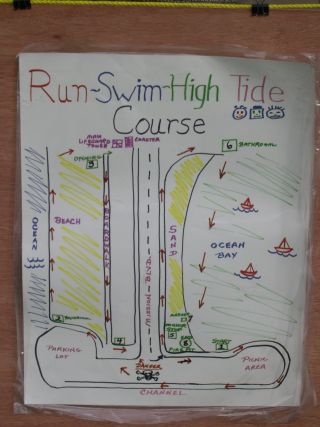 Run-Swim-High Tide
Course
MAIN
LIFEGUARD
TOWER
COASTER
6 BATHROOM
OPENING
3
OCEAN
BEACH
BOARDWALK
MISSION BLVD.
SAND
OCEAN
BAY
2
4
5
8
START
PARKING
LOT
DANGER
PICNIC
AREA
CHANNEL